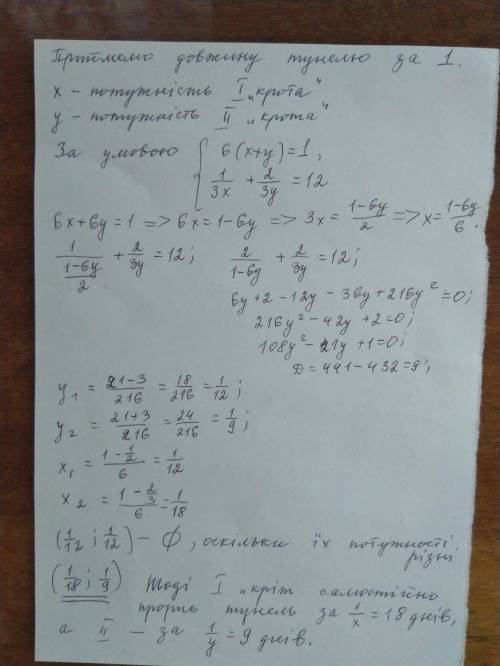 Приймемо довжину тунелю за 1.
x - потужність I „крота"
y - потужність II „крота"
За умовою { 6(x+y)=1,
1/3x + 2/3y = 12
6x+6y=1 => 6x=1-6y => 3x= (1-6y)/2 => x= (1-6y)/6.
1/((1-6y)/2) + 2/3y = 12; 2/(1-6y) + 2/3y = 12;
6y+2-12y-36y+216y²=0;
216y²-42y+2=0;
108y²-21y+1=0;
D=441-432=9;
y₁ = (21-3)/216 = 18/216 = 1/12;
y₂ = (21+3)/216 = 24/216 = 1/9;
x₁ = (1-1/2)/6 = 1/12
x₂ = (1-2/3)/6 = 1/18
(1/12; 1/12) - ∅, оскільки їх потужності
різні.
(1/18; 1/9) Тоді I „кріт самостійно
прориє тунель за 1/x = 18 днів,
а II - за 1/y = 9 днів.